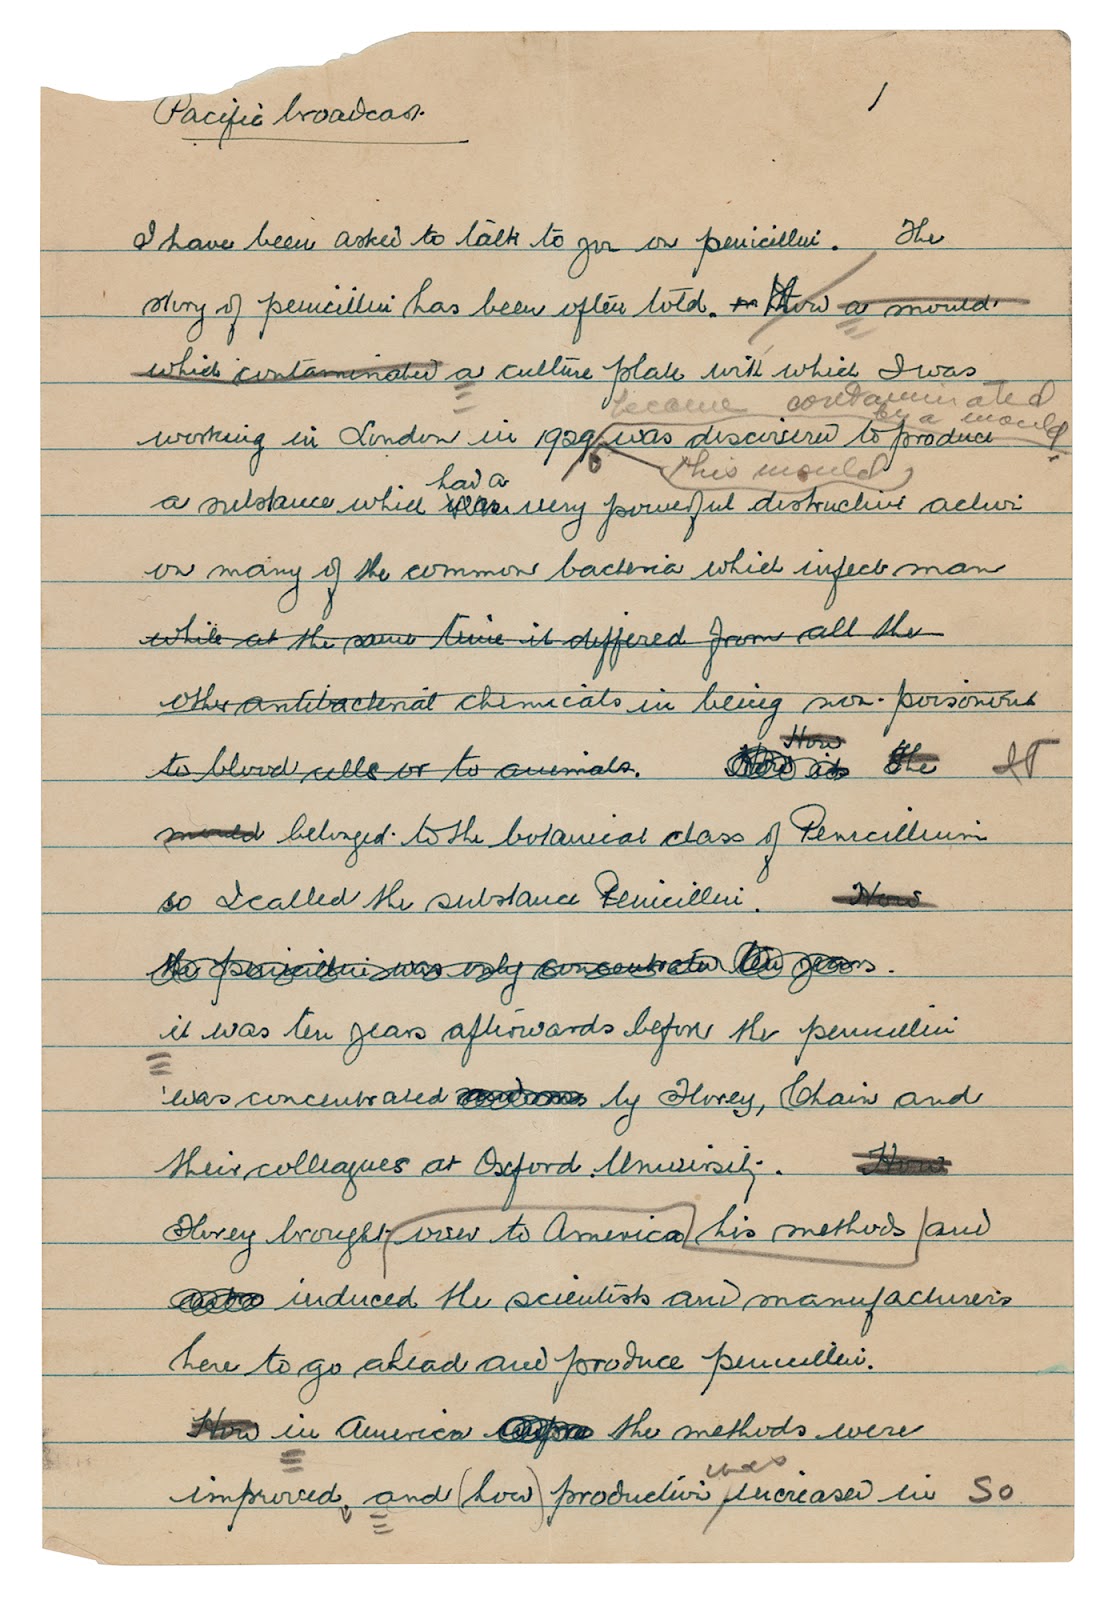 Pacific broadcast. 1
I have been asked to talk to you on penicillin. The
story of penicillin has been often told. How a mould
which contaminated a culture plate with which I was
become contaminated
by a mould.
working in London in 1929 was discovered to produce
this mould
had a
a substance which was very powerful destructive action
on many of the common bacteria which infect man
while at the same time it differed from all the
other antibacterial chemicals in being non-poisonous
How
to blood cells or to animals. How its the It
mould belonged to the botanical class of Penicillium
so I called the substance Penicillin. How
the penicillin was only concentrated ten years.
it was ten years afterwards before the penicillin
was concentrated by Florey, Chain and
their colleagues at Oxford University. How
Florey brought over to America his methods and
induced the scientists and manufacturers
here to go ahead and produce penicillin.
How in America the methods were
was
improved, and (how) production increased in So